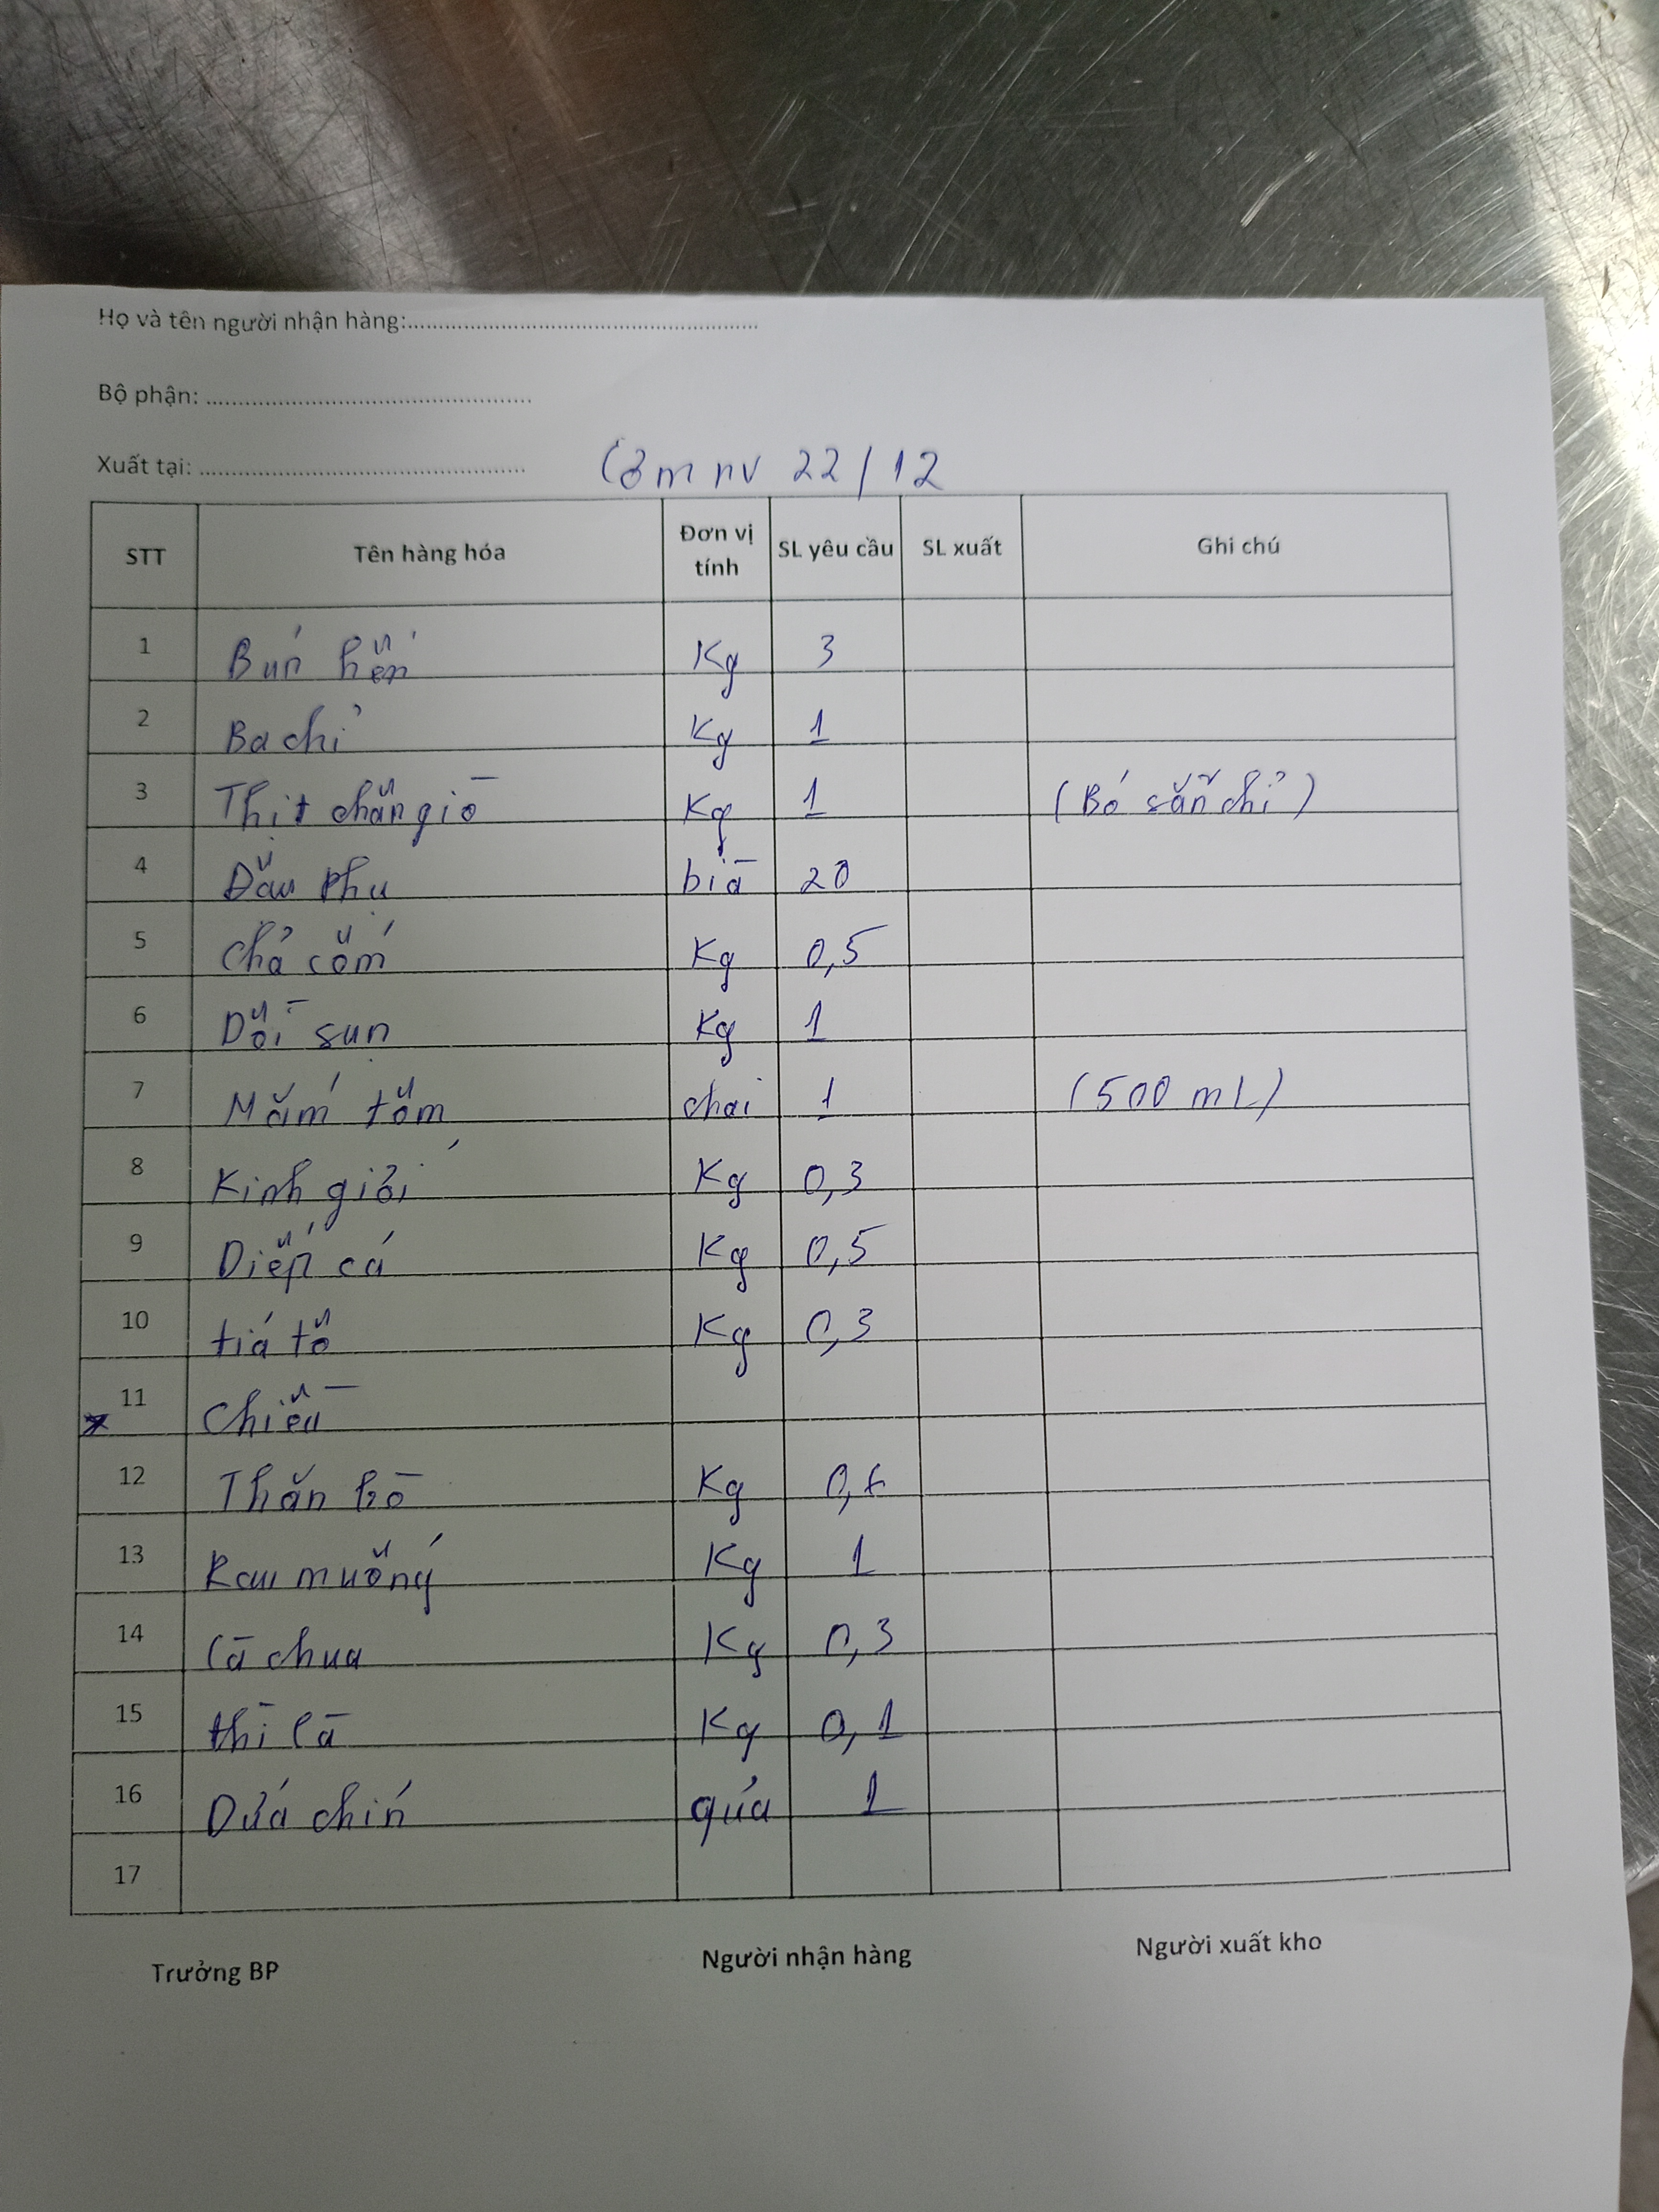 Họ và tên người nhận hàng:........................................................
Bộ phận: ....................................................
Xuất tại: ....................................................
Cơm nv 22/12
STT Tên hàng hóa Đơn vị tính SL yêu cầu SL xuất Ghi chú
1 Bún hến Kg 3
2 Ba chỉ Kg 1
3 Thịt chân giò Kg 1 (Bó sẵn chỉ)
4 Đậu phụ bìa 20
5 Chả cốm Kg 0,5
6 Dồi sụn Kg 1
7 Mắm tôm chai 1 (500 ml)
8 Kinh giới Kg 0,3
9 Diếp cá Kg 0,5
10 tiá tô Kg 0,3
11 Chiều
12 Thăn bò Kg
13 Rau muống Kg 1
14 Cà chua Kg 0,3
15 thì là Kg 0,1
16 Dứa chín qủa 1
17
Trưởng BP Người nhận hàng Người xuất kho